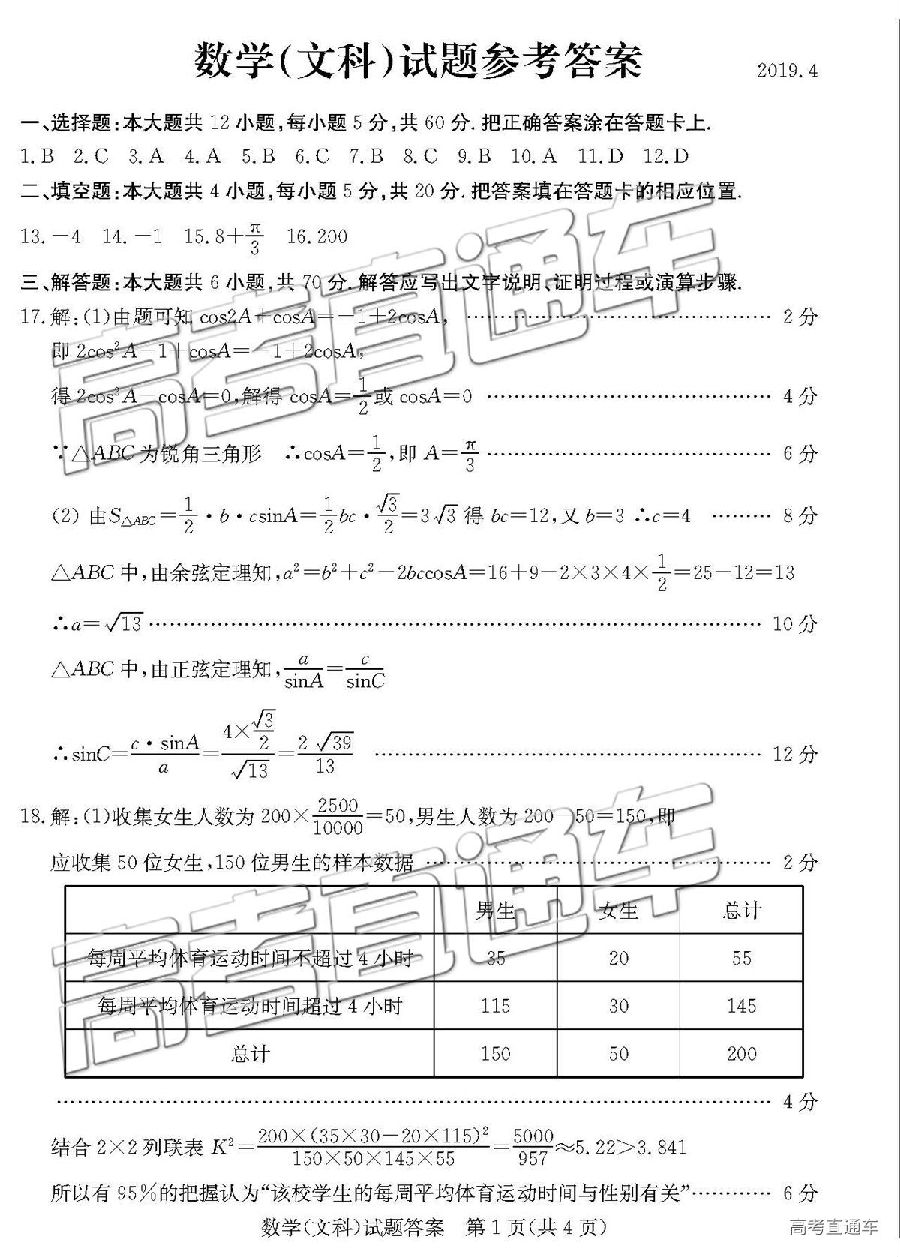 数学(文科)试题参考答案 2019.4
一、选择题:本大题共 12 小题,每小题 5 分,共 60 分.把正确答案涂在答题卡上.
1.B 2.C 3.A 4.A 5.B 6.C 7.B 8.C 9.B 10.A 11.D 12.D
二、填空题:本大题共 4 小题,每小题 5 分,共 20 分.把答案填在答题卡的相应位置.
13.-4 14.-1 15.8+π/3 16.200
三、解答题:本大题共 6 小题,共 70 分.解答应写出文字说明、证明过程或演算步骤.
17.解:(1)由题可知 cos2A+cosA=-1+2cosA, …… 2 分
即 2cos²A-1+cosA=-1+2cosA,
得 2cos²A-cosA=0,解得 cosA=1/2或 cosA=0 …… 4 分
∵△ABC为锐角三角形 ∴cosA=1/2,即 A=π/3 …… 6 分
(2) 由S△ABC=1/2·b·csinA=1/2bc·√3/2=3√3 得 bc=12,又 b=3 ∴c=4 …… 8 分
△ABC 中,由余弦定理知,a²=b²+c²-2bccosA=16+9-2×3×4×1/2=25-12=13
∴a=√13 …… 10 分
△ABC 中,由正弦定理知,a/sinA=c/sinC
∴sinC=c·sinA/a=(4×√3/2)/√13=2√39/13 …… 12 分
18.解:(1)收集女生人数为 200×2500/10000=50,男生人数为 200-50=150,即
应收集 50 位女生,150 位男生的样本数据 …… 2 分
男生 女生 总计
每周平均体育运动时间不超过 4 小时 35 20 55
每周平均体育运动时间超过 4 小时 115 30 145
总计 150 50 200
…… 4 分
结合 2×2 列联表 K²=200×(35×30-20×115)²/150×50×145×55=5000/957≈5.22>3.841
所以有 95%的把握认为“该校学生的每周平均体育运动时间与性别有关” …… 6 分
数学(文科)试题答案 第 1 页(共 4 页)
高考直通车
高考直通车
高考直通车